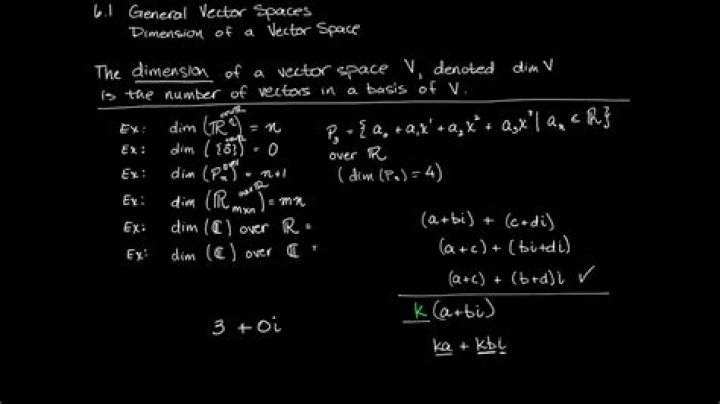 6.1 General Vector Spaces
Dimension of a Vector Space
The dimension of a vector space V, denoted dim V
is the number of vectors in a basis of V.
Ex: dim (ℝⁿ) = n
Ex: dim ({0⃗}) = 0
Ex: dim (Pₙ) = n+1
Ex: dim (ℝ m×n) = mn
Ex: dim (ℂ) over ℝ =
Ex: dim (ℂ) over ℂ =
P₃ = { a₀ + a₁x¹ + a₂x² + a₃x³ | aₙ ∈ ℝ}
over ℝ
(dim (Pₙ) = 4)
(a+bi) + (c+di)
(a+c) + (bi+di)
(a+c) + (b+d)i ✓
k (a+bi)
ka + kbi
3 + 0i